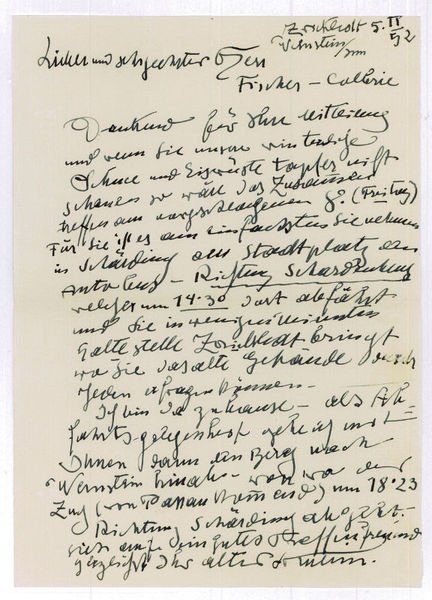 Zwickledt 5. II 52
Wernstein/Inn
Lieber und sehr geehrter Herr
Fischer-Colbrie
Dankend für Ihre Mitteilung
und wenn Sie unsere winterliche
Schnee und Eiswüste tapfer nicht
scheuen so wäre das Zusammen
treffen am vorgeschlagenen 8. (Freitag)
Für Sie ist es am einfachsten Sie nehmen
in Schärding am Stadtplatz den
Autobus - Richtung Schardenberg
welcher um 14.30 dort abfährt
und Sie in wenigen Minuten
Haltestelle Zwickledt bringt
wo Sie das alte Gebäude durch
jeden erfragen können -
Ich bin da zuhause - als Rück-
fahrtsgelegenheit gehe ich mit
Ihnen dann den Berg nach
Wernstein hinab - von wo der
Zug (von Passau kommend) um 18.23
Richtung Schärding abgeht -
sich auf ein gutes Treffen freuend
Ihr alter Kubin.